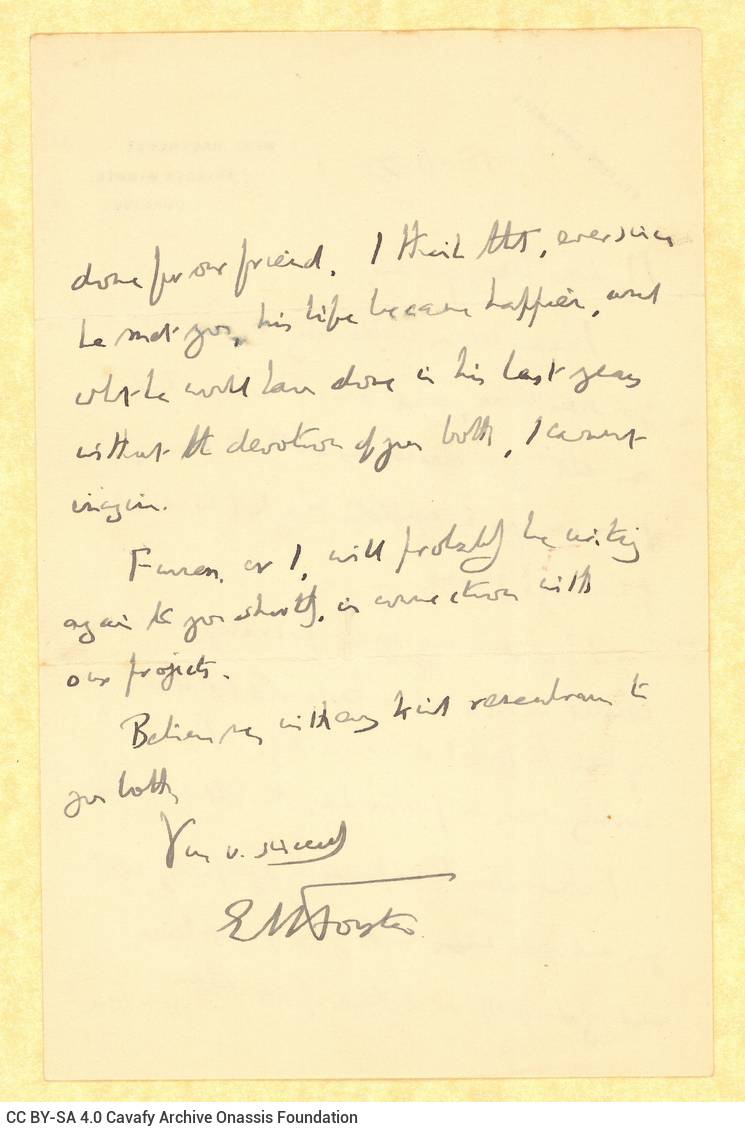 done for our friend. I think that, ever since
he met you, his life became happier, and
what he would have done in his last years
without the devotion of you both, I cannot
imagine.
Furness, or I, will probably be writing
again to you shortly, in connection with
our projects.
Believe me, with every kind remembrance to
you both,
Yours v. sincerely
EMForster
CC BY-SA 4.0 Cavafy Archive Onassis Foundation